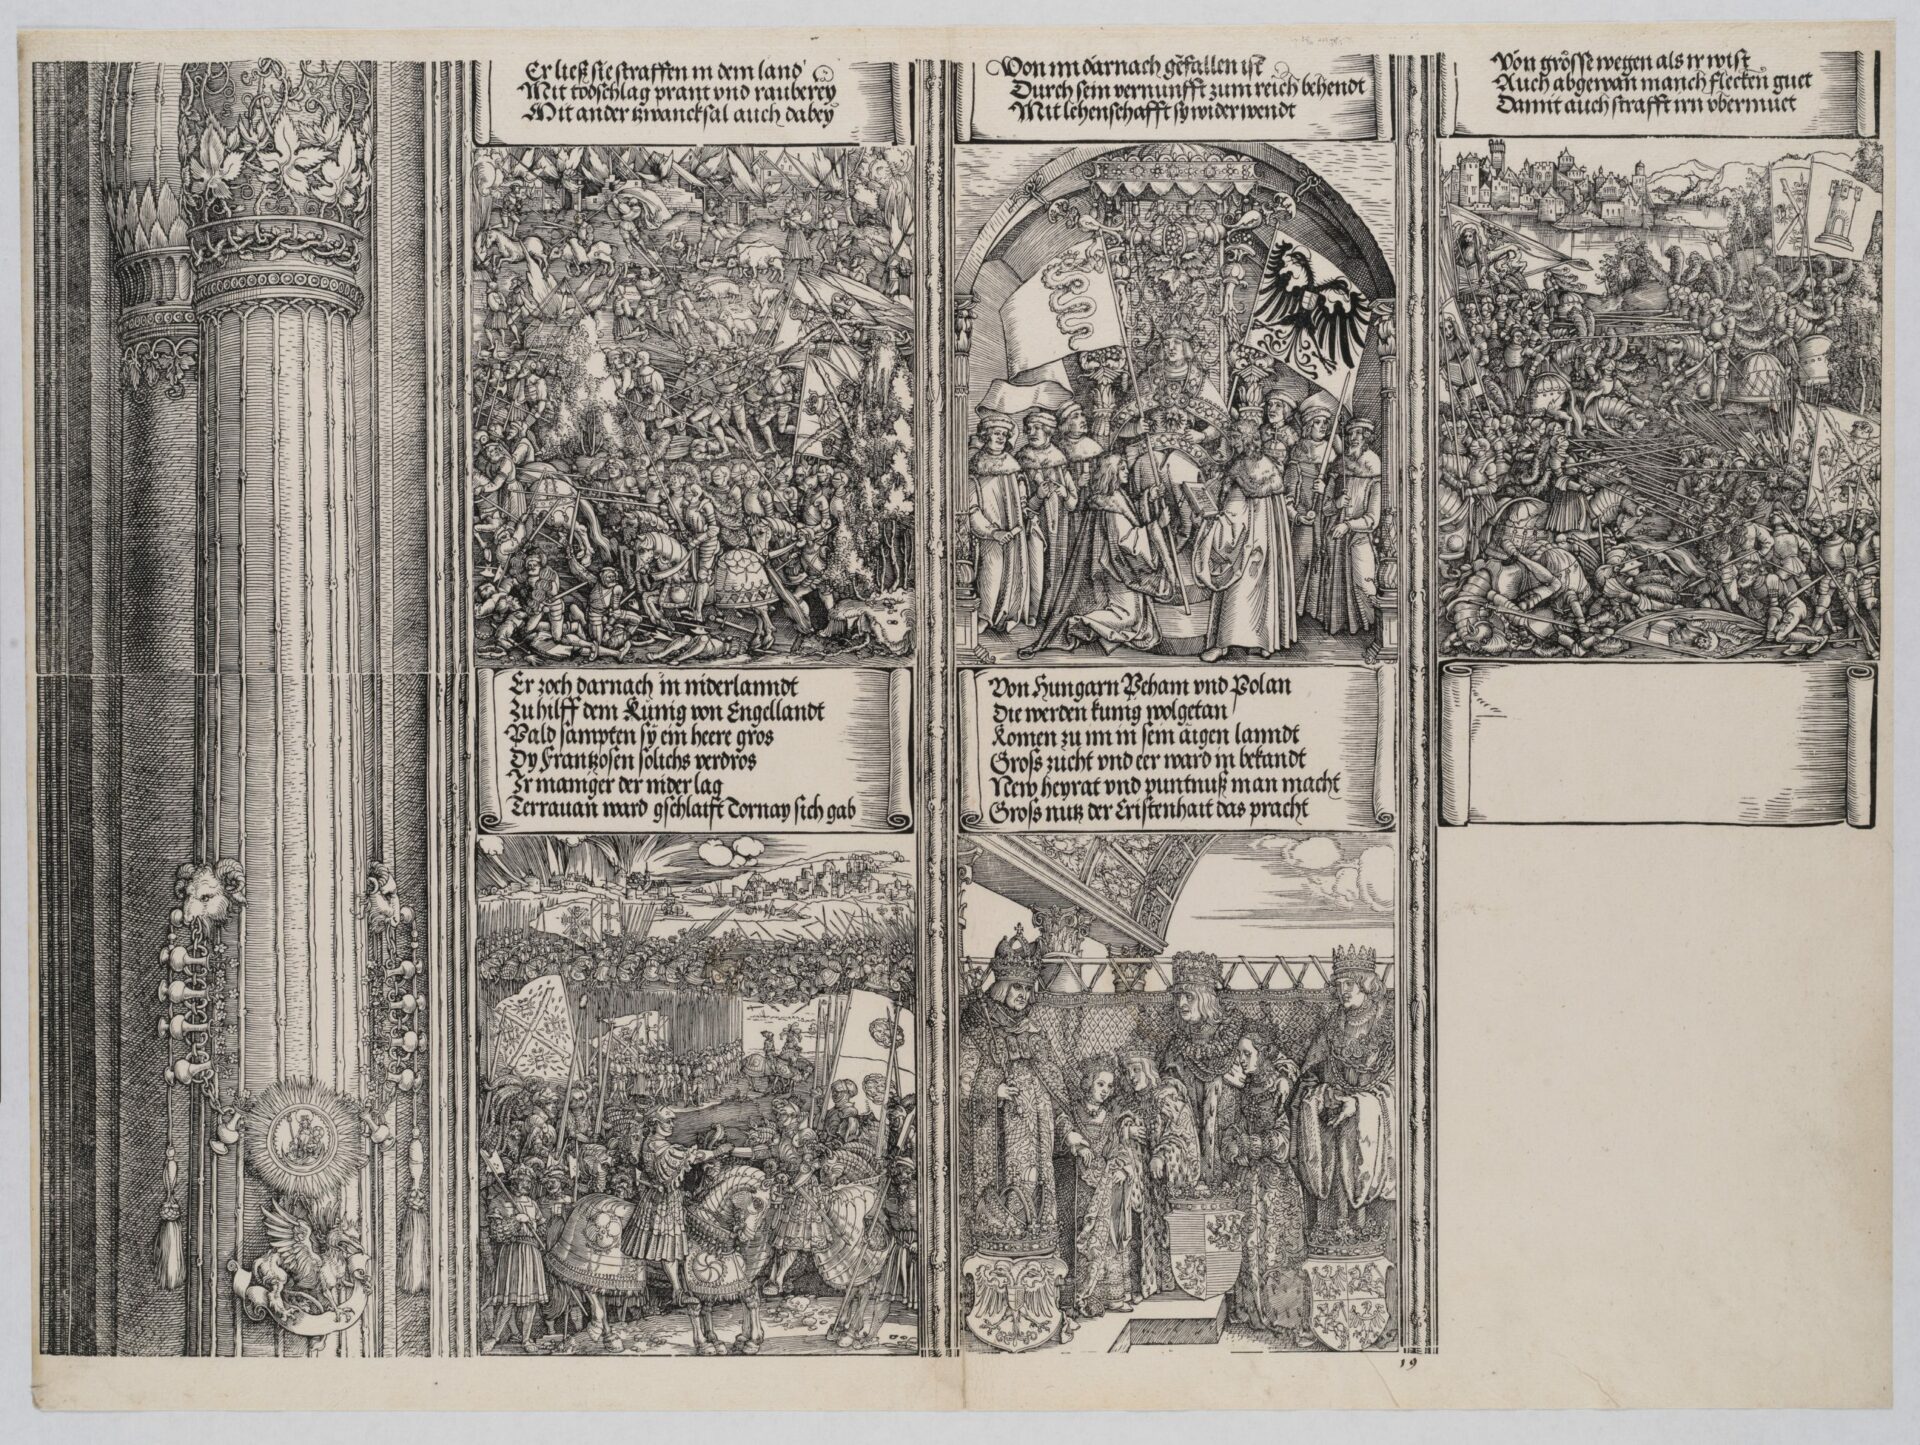 Er ließ sie straffen in dem land
Mit todschlag prant vnd rauberey
Mit ander zwancksal auch dabey
Von im darnach gefallen ist
Durch sein vernunfft zum reich behendt
Mit lehenschafft sy wider wendt
Von grösse wegen als ir wist
Auch abgewan manch flecken guet
Damit auch strafft irn vbermuet
Er zoch darnach in niderlanndt
Zu hilff dem Künig von Engellandt
Bald sampten sy ein heere gros
Dy Frantzosen solichs verdros
Ir maniger der nider lag
Terrauan ward gschlaift Tornay sich gab
Von Hungarn Peham vnd Polan
Die werden kunig wolgetan
Komen zu im in sein aigen lanndt
Groß zucht vnd eer ward in bekandt
New heyrat vnd puntnuß man macht
Groß nutz der Cristenhait das pracht
19